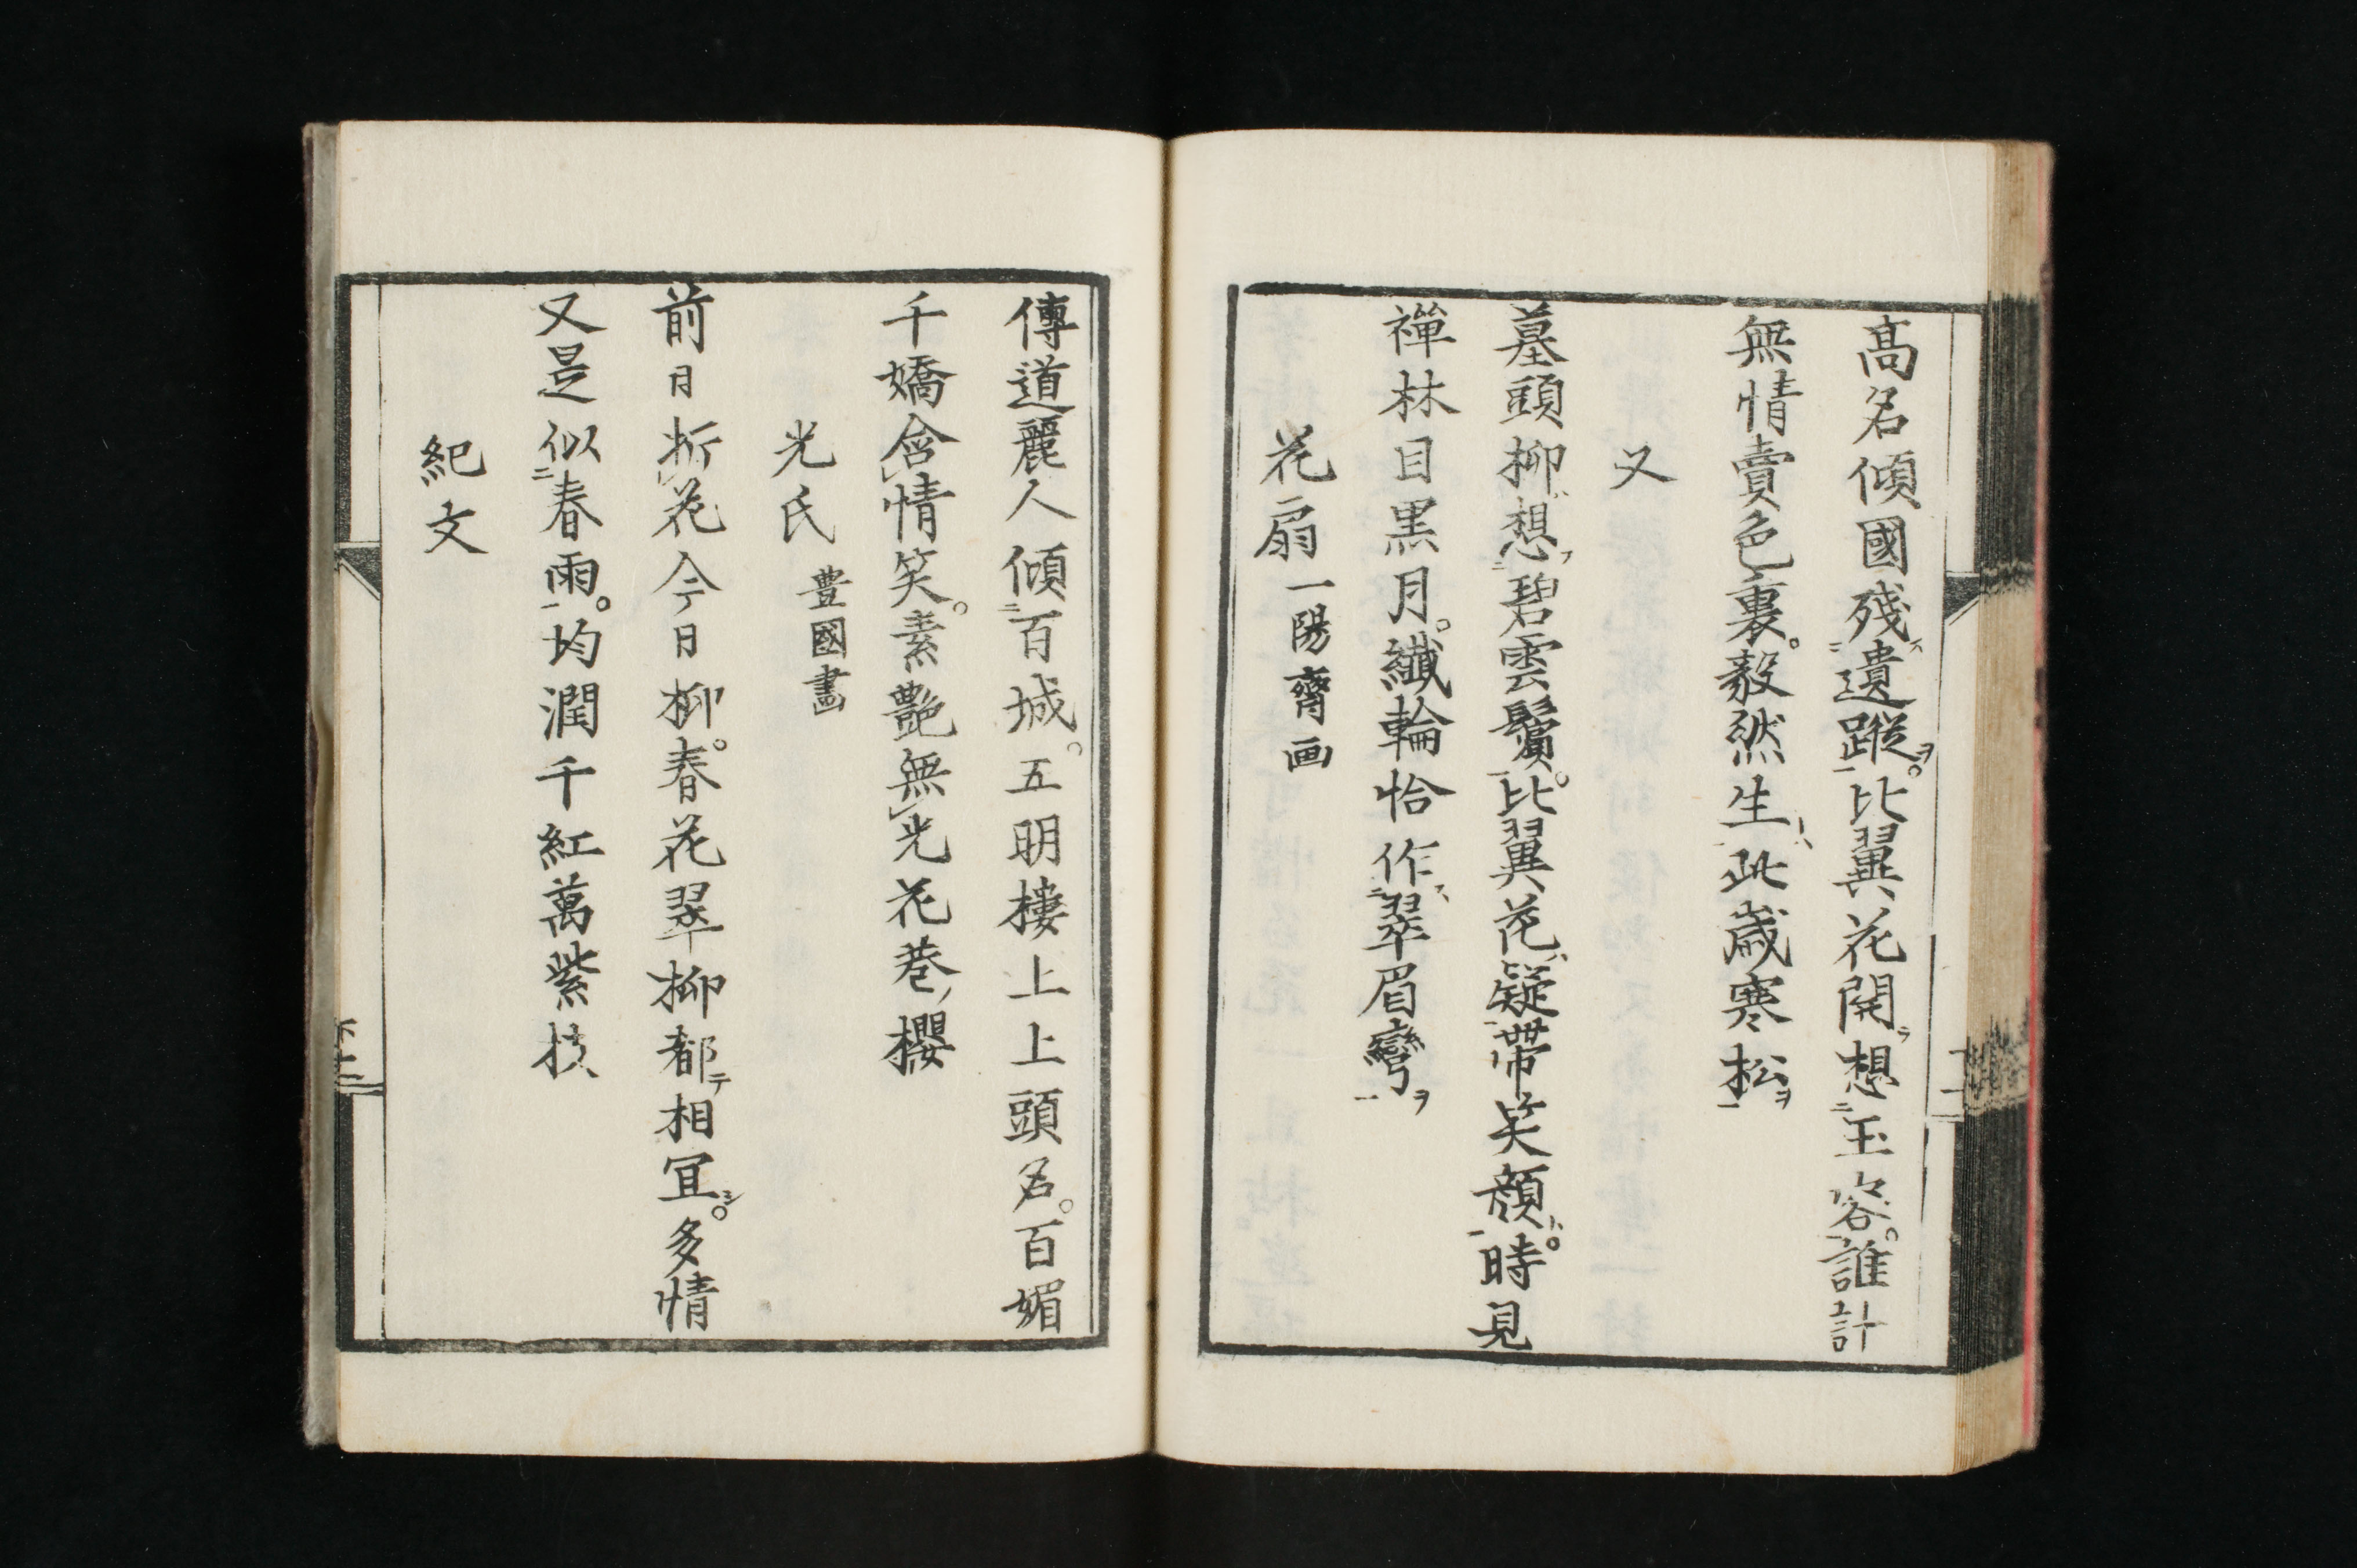 高名傾國殘遺蹤。比翼花開想玉容。誰計
無情賣色裏。毅然生此歳寒松
又
墓頭柳想碧雲鬟。比翼花疑帶笑顔。時見
禪林目黒月。纖輪恰作翠眉彎
花扇 一陽齋画
傳道麗人傾百城。五明樓上上頭名。百媚
千嬌含情笑。素艶無光花巷櫻
光氏 豊國畫
前日折花今日柳。春花翠柳都相宜。多情
又是似春雨。均潤千紅萬紫技
紀文